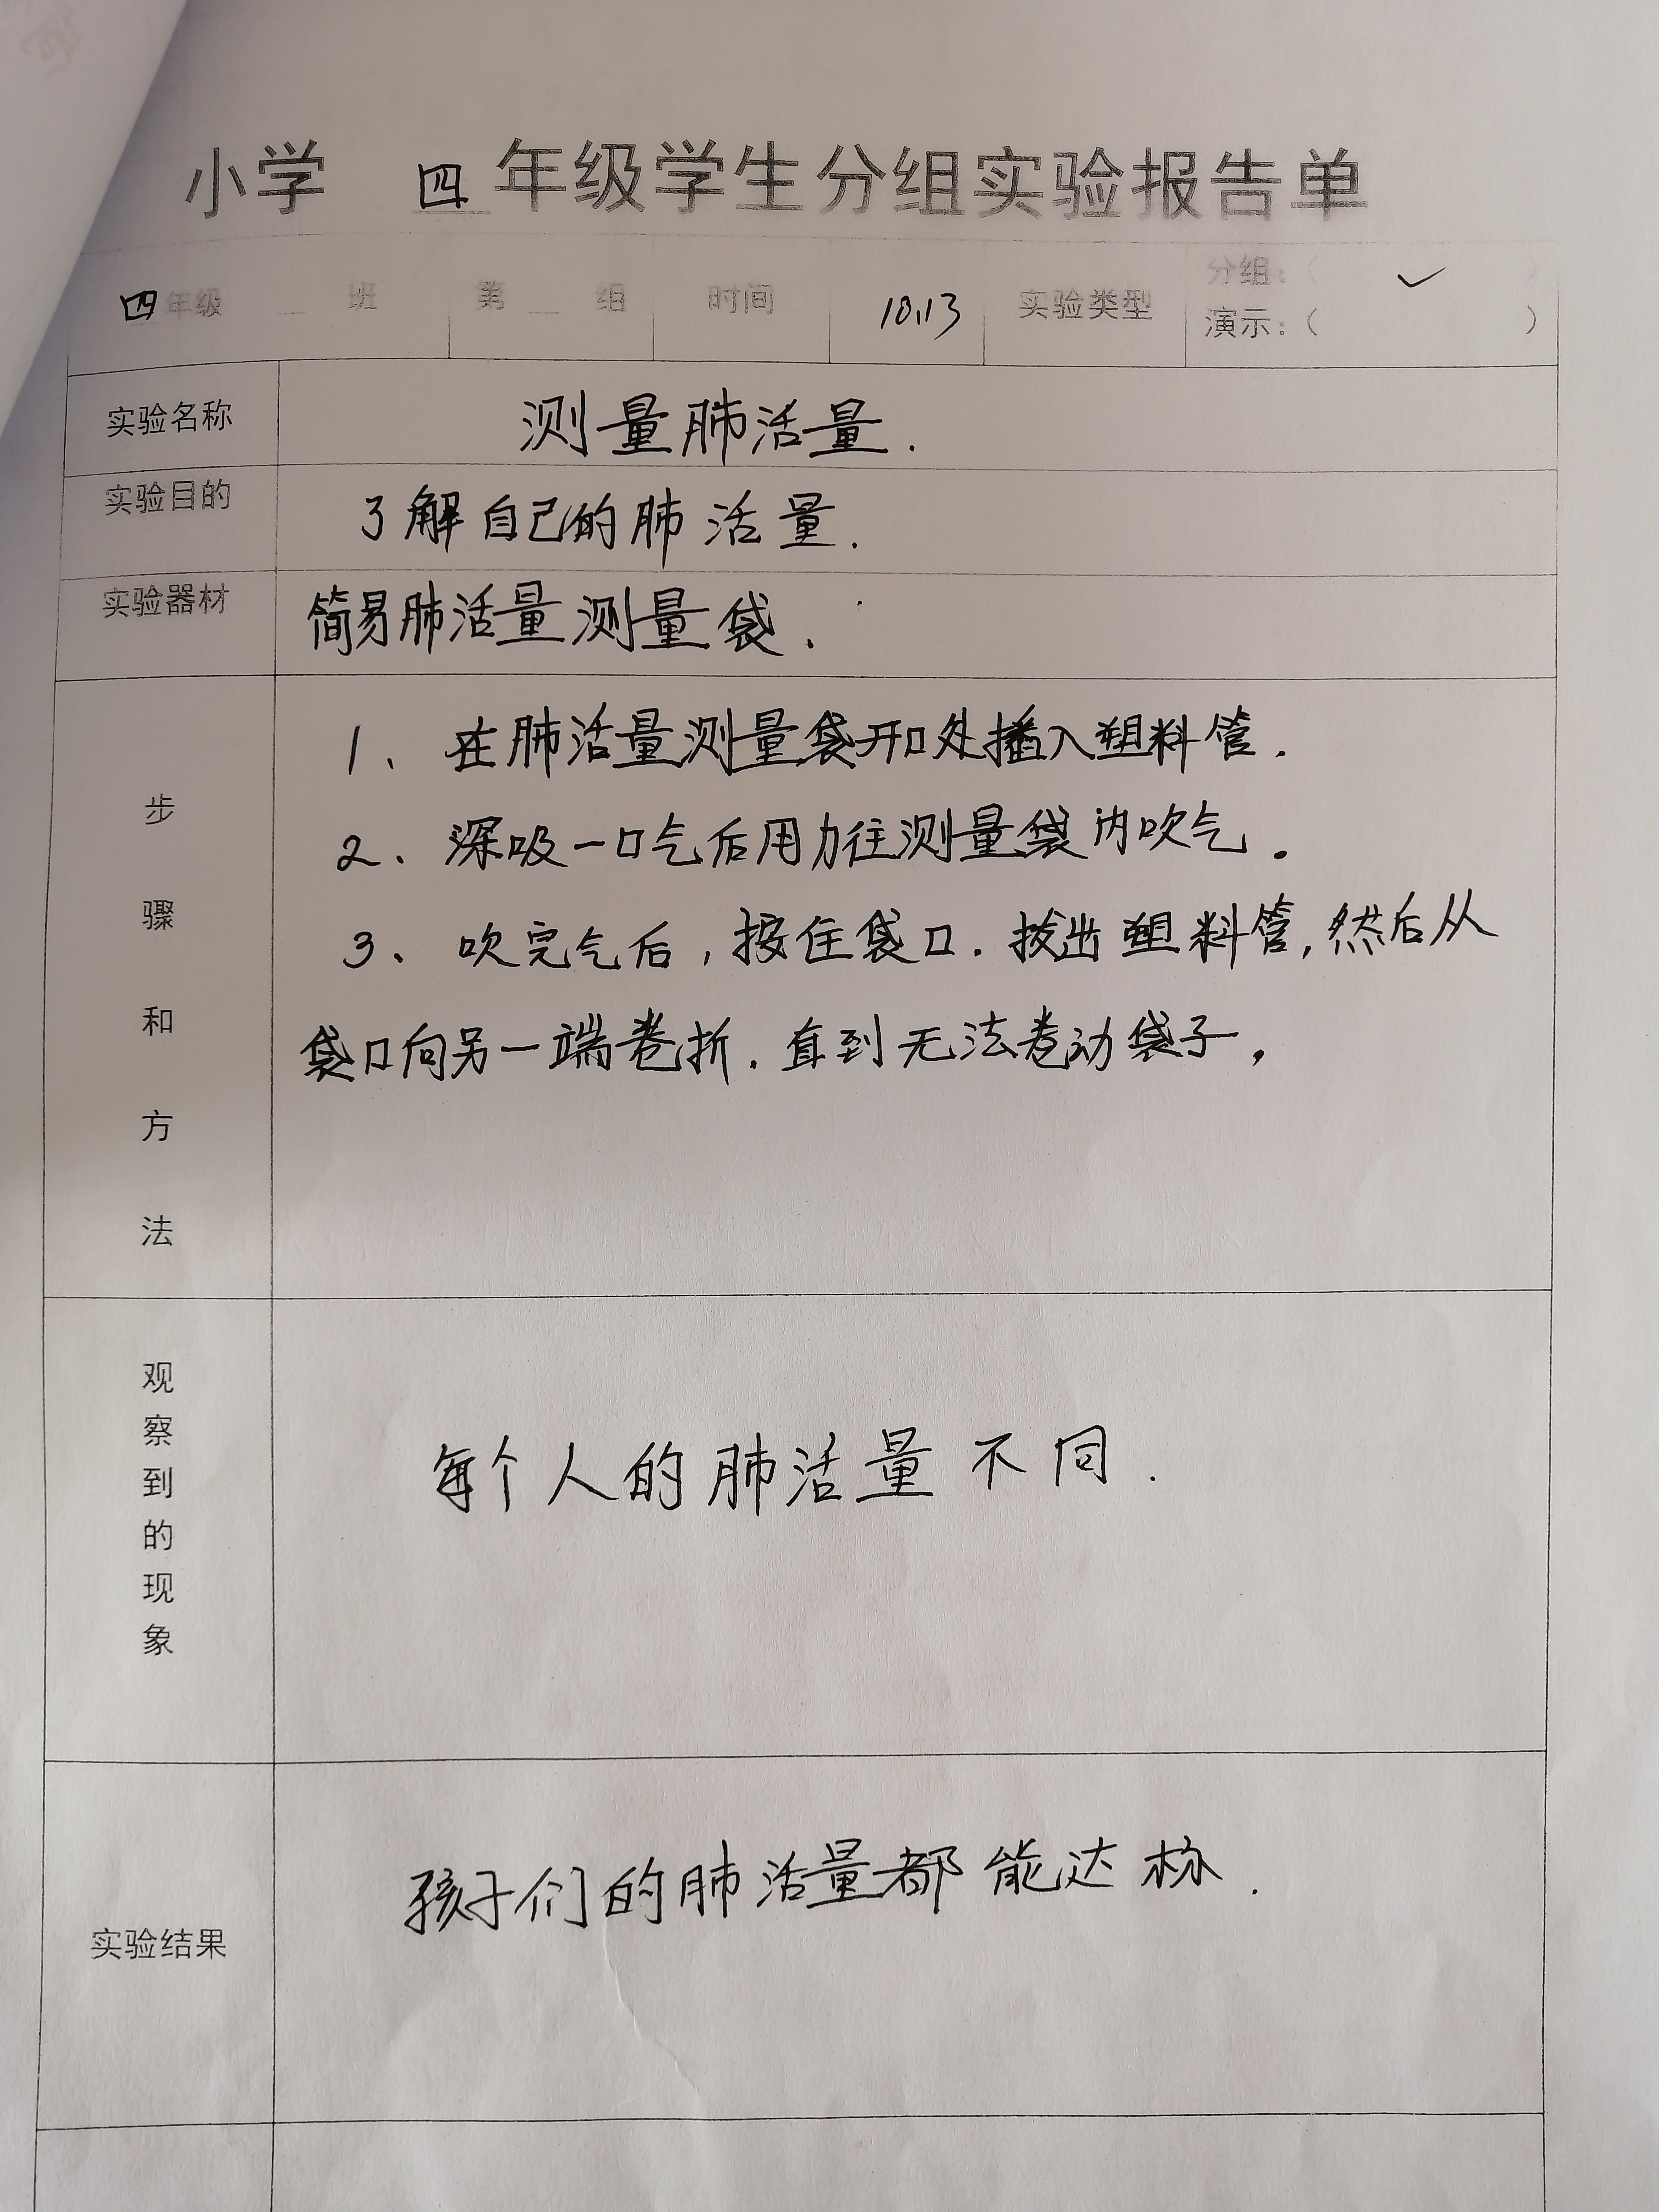 小学 四 年级学生分组实验报告单
四年级 班 第 组 时间 10.13 实验类型 分组：（ ✓ ）
演示：（ ）
实验名称 测量肺活量.
实验目的 了解自己的肺活量.
实验器材 简易肺活量测量袋.
步骤和方法
1、在肺活量测量袋开口处插入塑料管.
2、深吸一口气后用力往测量袋内吹气。
3、吹完气后,按住袋口.拔出塑料管,然后从
袋口向另一端卷折.直到无法卷动袋子,
观察到的现象
每个人的肺活量不同.
实验结果 孩子们的肺活量都能达标.